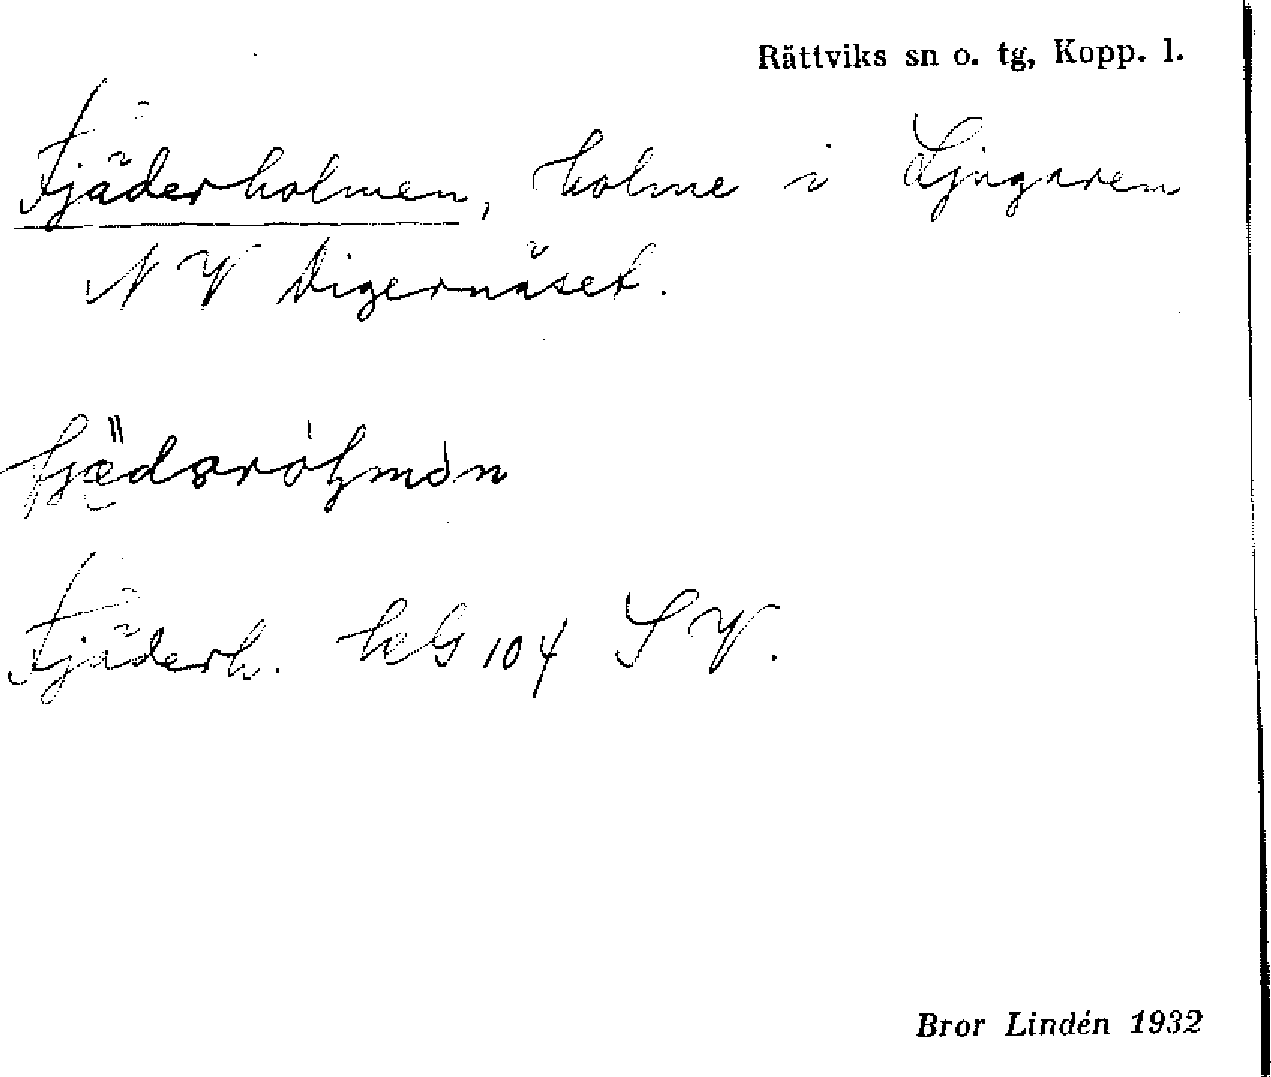 Rättviks sn o. tg, Kopp. l.
Fjäderholmen, holme i Ljugaren
N V Digernäset.
Fjäderh. kbG 104 S V.
Bror Lindén 1932